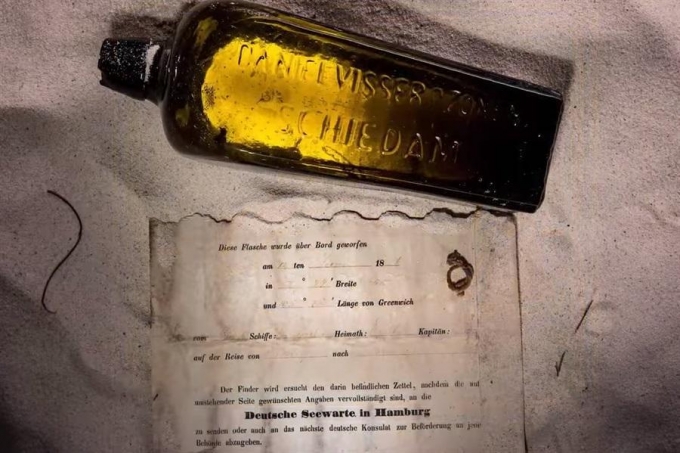 DANIEL VISSER & ZONEN
SCHIEDAM
Diese Flasche wurde über Bord geworfen
am ten 18
in ° ' Breite
und ° ' Länge von Greenwich
vom Schiffe: Heimath: Kapitän:
auf der Reise von nach
Der Finder wird ersucht den darin befindlichen Zettel, nachdem die auf
umstehender Seite gewünschten Angaben vervollständigt sind, an die
Deutsche Seewarte in Hamburg
zu senden oder auch an das nächste deutsche Konsulat zur Beförderung an jene
Behörde abzugeben.